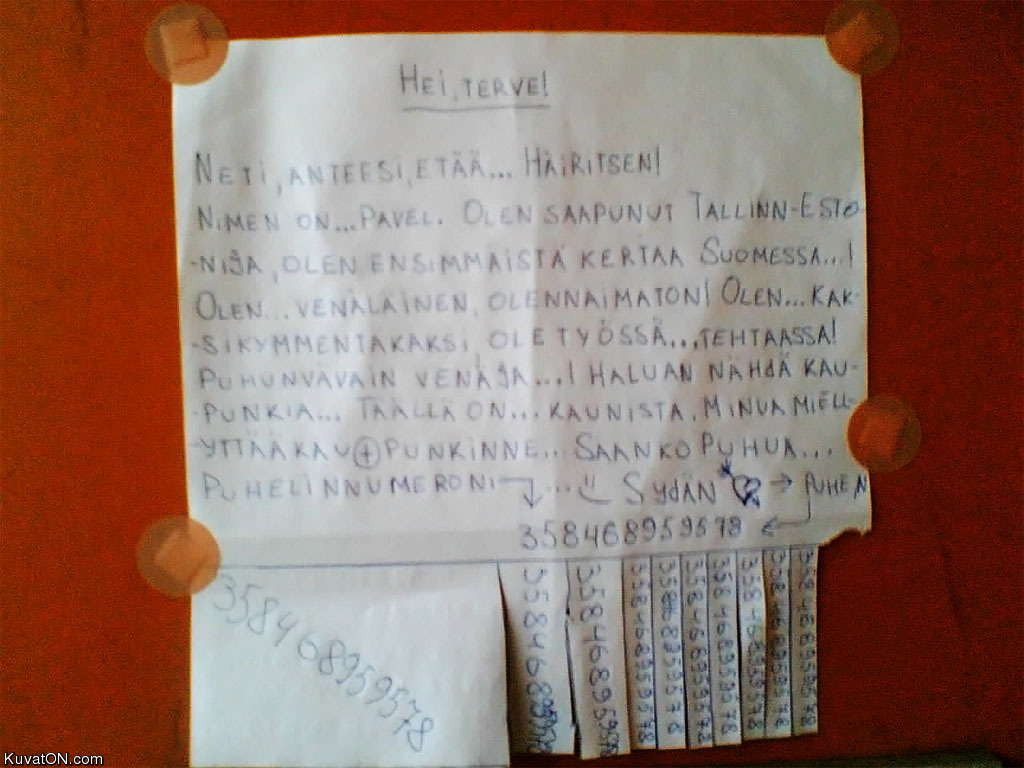 HEI, TERVE!
NETI, ANTEESI, ETÄÄ... HÄIRITSEN!
NIMEN ON... PAVEL. OLEN SAAPUNUT TALLINN-ESTO-
-NIJA, OLEN ENSIMMÄISTÄ KERTAA SUOMESSA...!
OLEN... VENÄLÄINEN, OLENNAIMATON! OLEN... KAK-
-SIKYMMENTÄKAKSI, OLE TYÖSSÄ... TEHTAASSA!
PUHUNVAVAIN VENÄJA...! HALUAN NÄHDÄ KAU-
-PUNKIA... TÄÄLLÄ ON... KAUNISTA. MINUA MIELL-
-YTTÄÄ KAU+PUNKINNE... SAANKO PUHUA...
PUHELINNUMERONI → ... SYDÄN → PUHEN
358468959578 ←
358468959578
358468959578
358468959578
358468959578
358468959578
358468959578
358468959578
358468959578
358468959578
358468959578
KuvatON.com